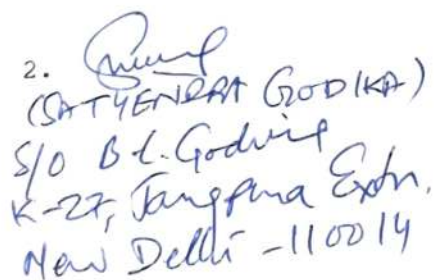 2.
(SATYENDRA GODIKA)
S/O B.L. Godika
K-27, Jangpura Extn.
New Delhi - 110014